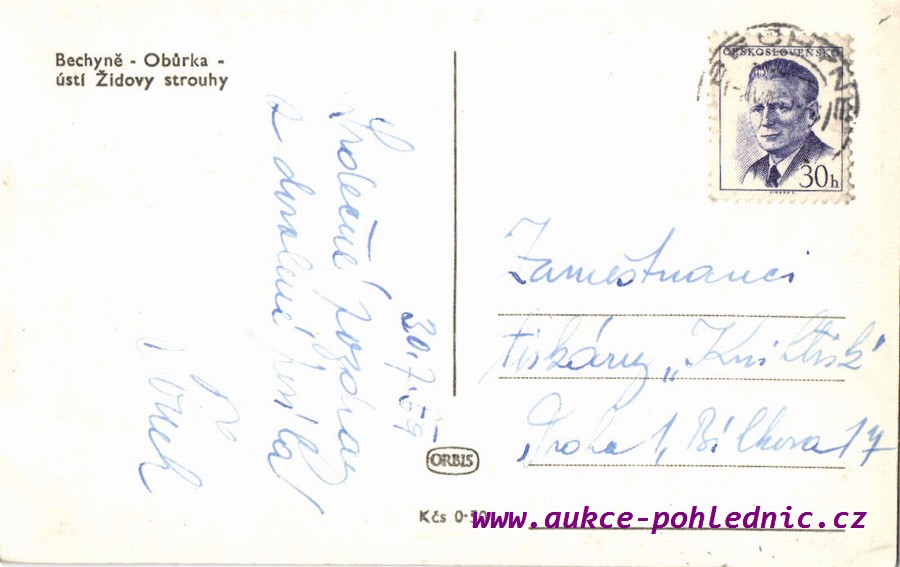 Bechyně - Obůrka -
ústí Židovy strouhy
ČESKOSLOVENSKO
30h
BECHYNĚ
Srdečné pozdravy
z dovolené posílá
30.7.59
Zaměstnanci
tiskárny „Knihtisk"
Praha 1, Bílkova 17
ORBIS
Kčs 0·50
www.aukce-pohlednic.cz